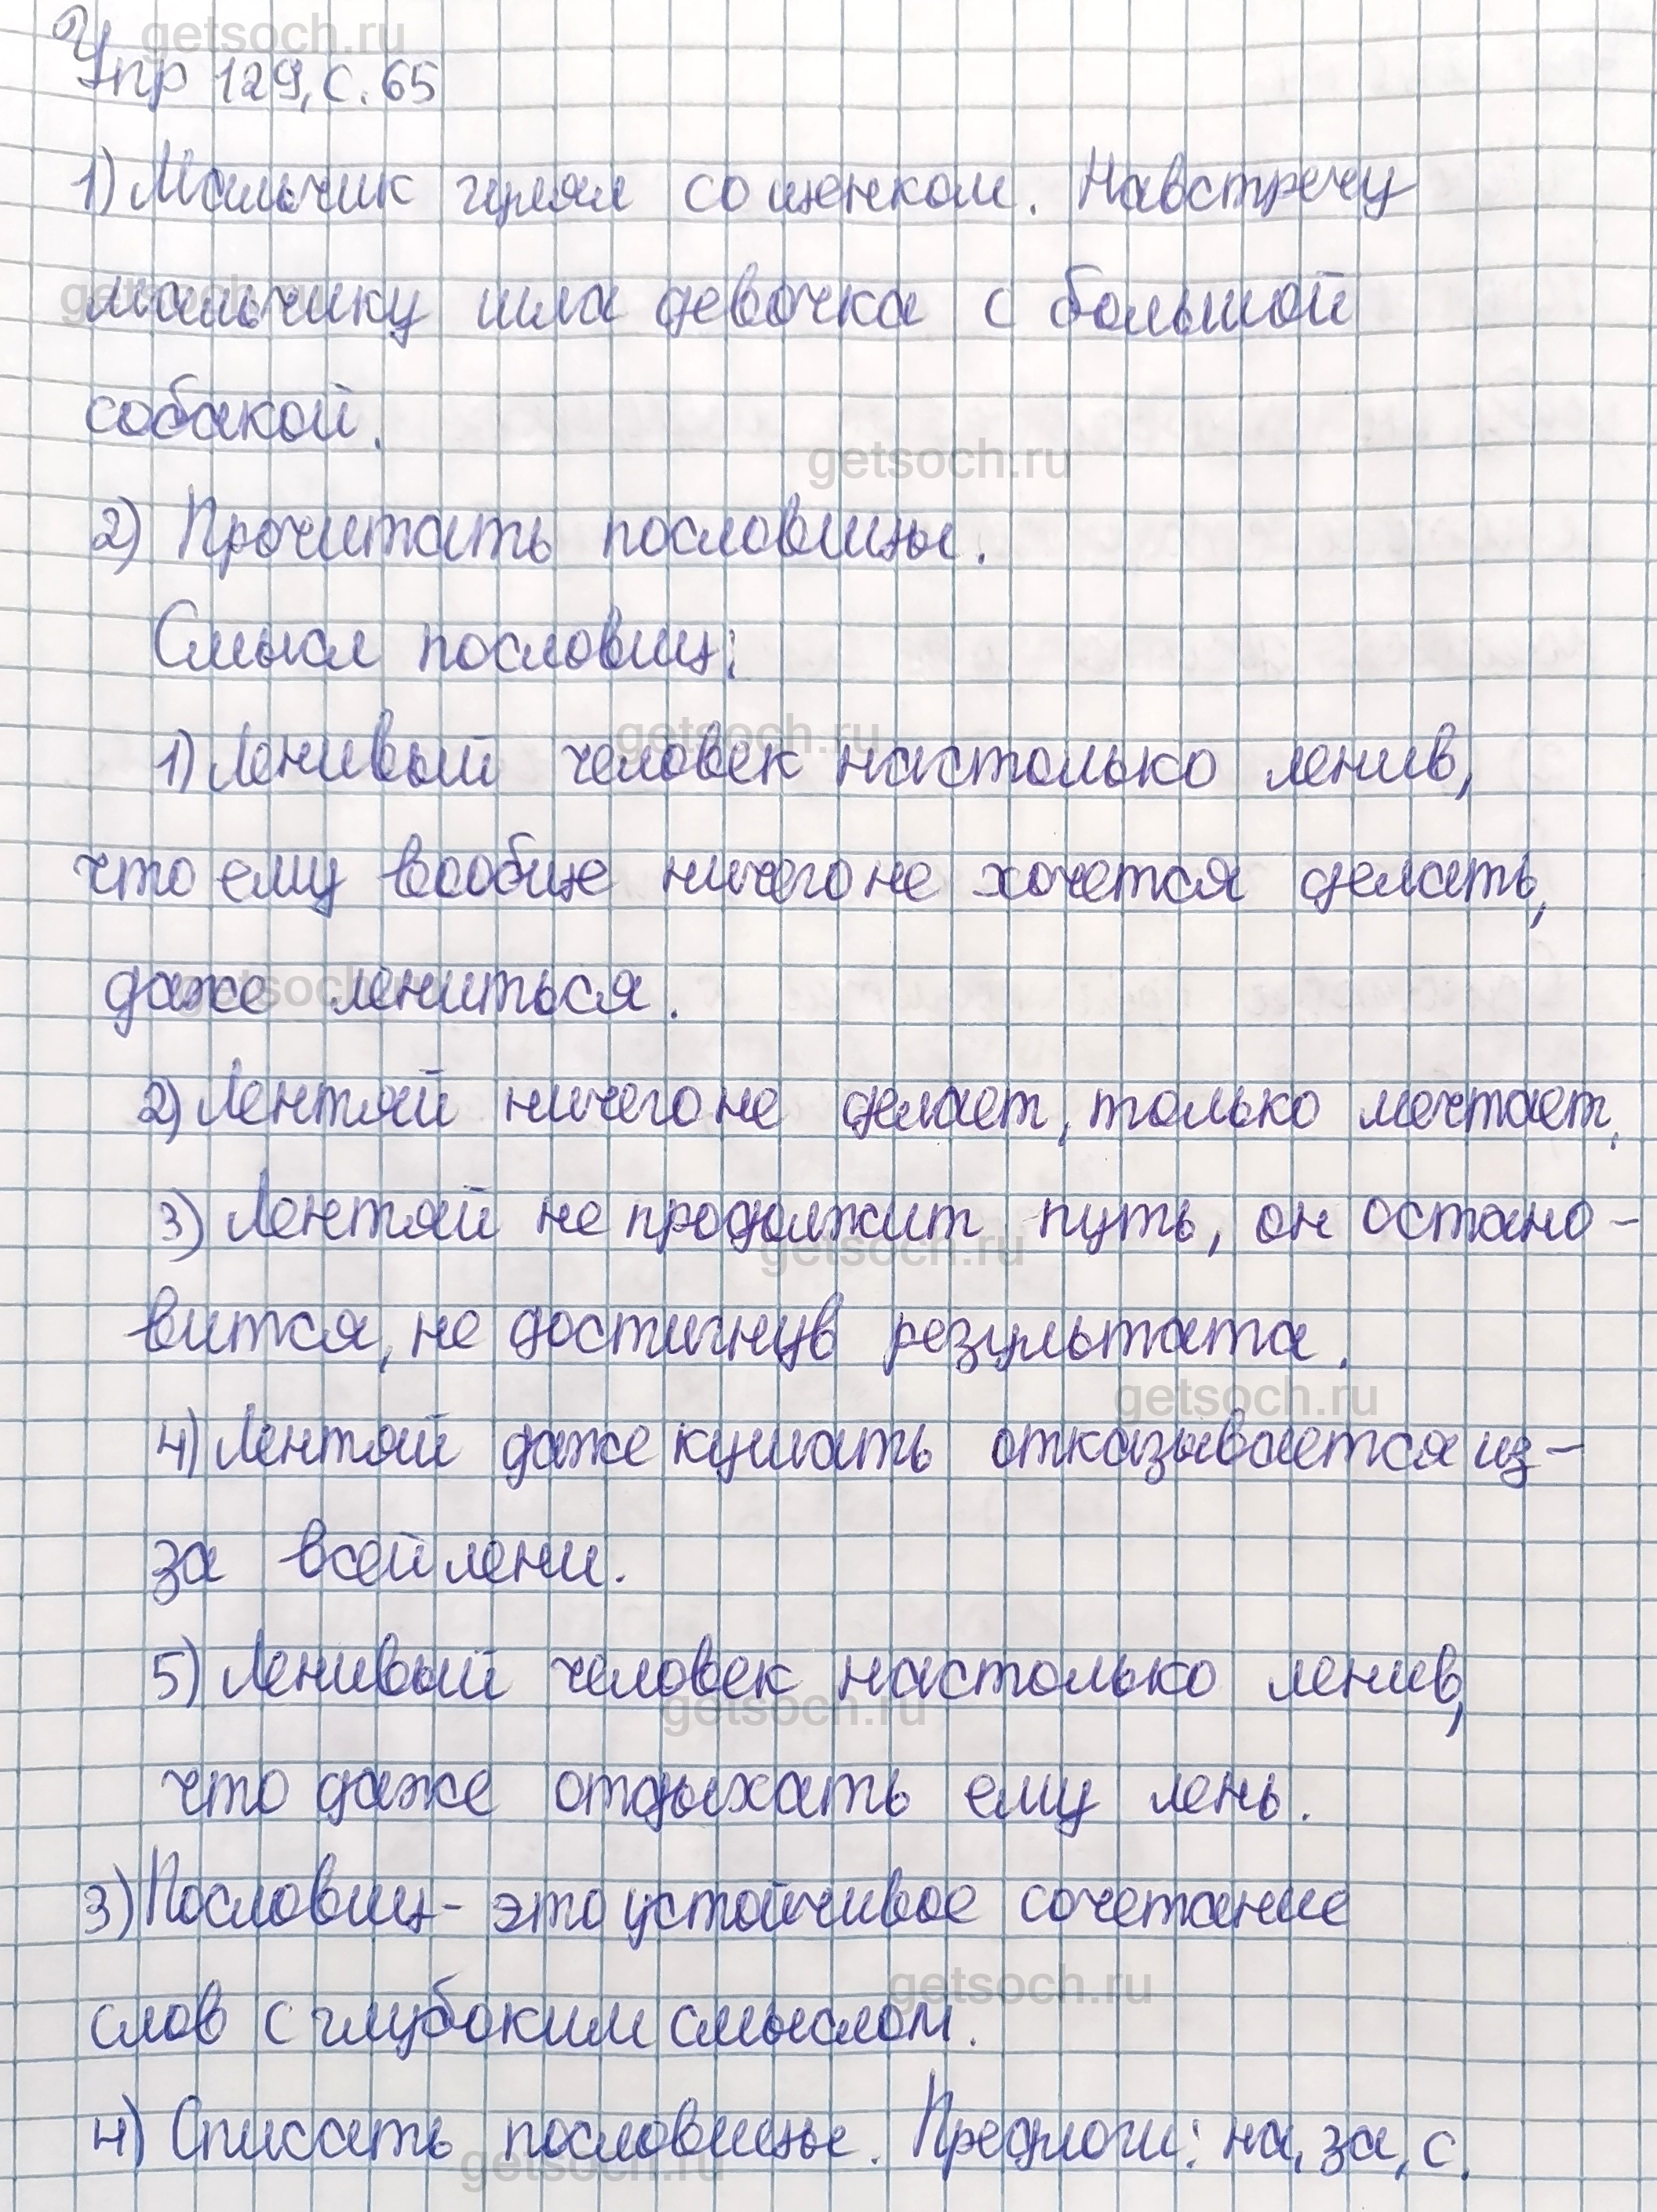 getsoch.ru
Упр 129, с. 65
1) Мальчик гулял со щенком. Навстречу
getsoch.ru
мальчику шла девочка с большой
собакой.
getsoch.ru
2) Прочитать пословицы.
Смысл пословиц:
getsoch.ru
1) Ленивый человек настолько ленив,
что ему вообще ничего не хочется делать,
getsoch.ru
даже лениться.
2) Лентяй ничего не делает, только мечтает.
3) Лентяй не продолжит путь, он остано-
getsoch.ru
вится, не достигнув результата.
getsoch.ru
4) Лентяй даже кушать отказывается из-
за всей лени.
5) Ленивый человек настолько ленив,
getsoch.ru
что даже отдыхать ему лень.
3) Пословиц - это устойчивое сочетание
getsoch.ru
слов с глубоким смыслом.
4) Списать пословицы. Предлоги: на, за, с.
getsoch.ru